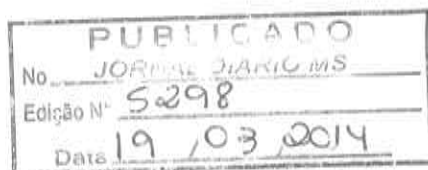 PUBLICADO
No JORNAL DIÁRIO MS
Edição Nº 5298
Data 19 / 03 / 2014